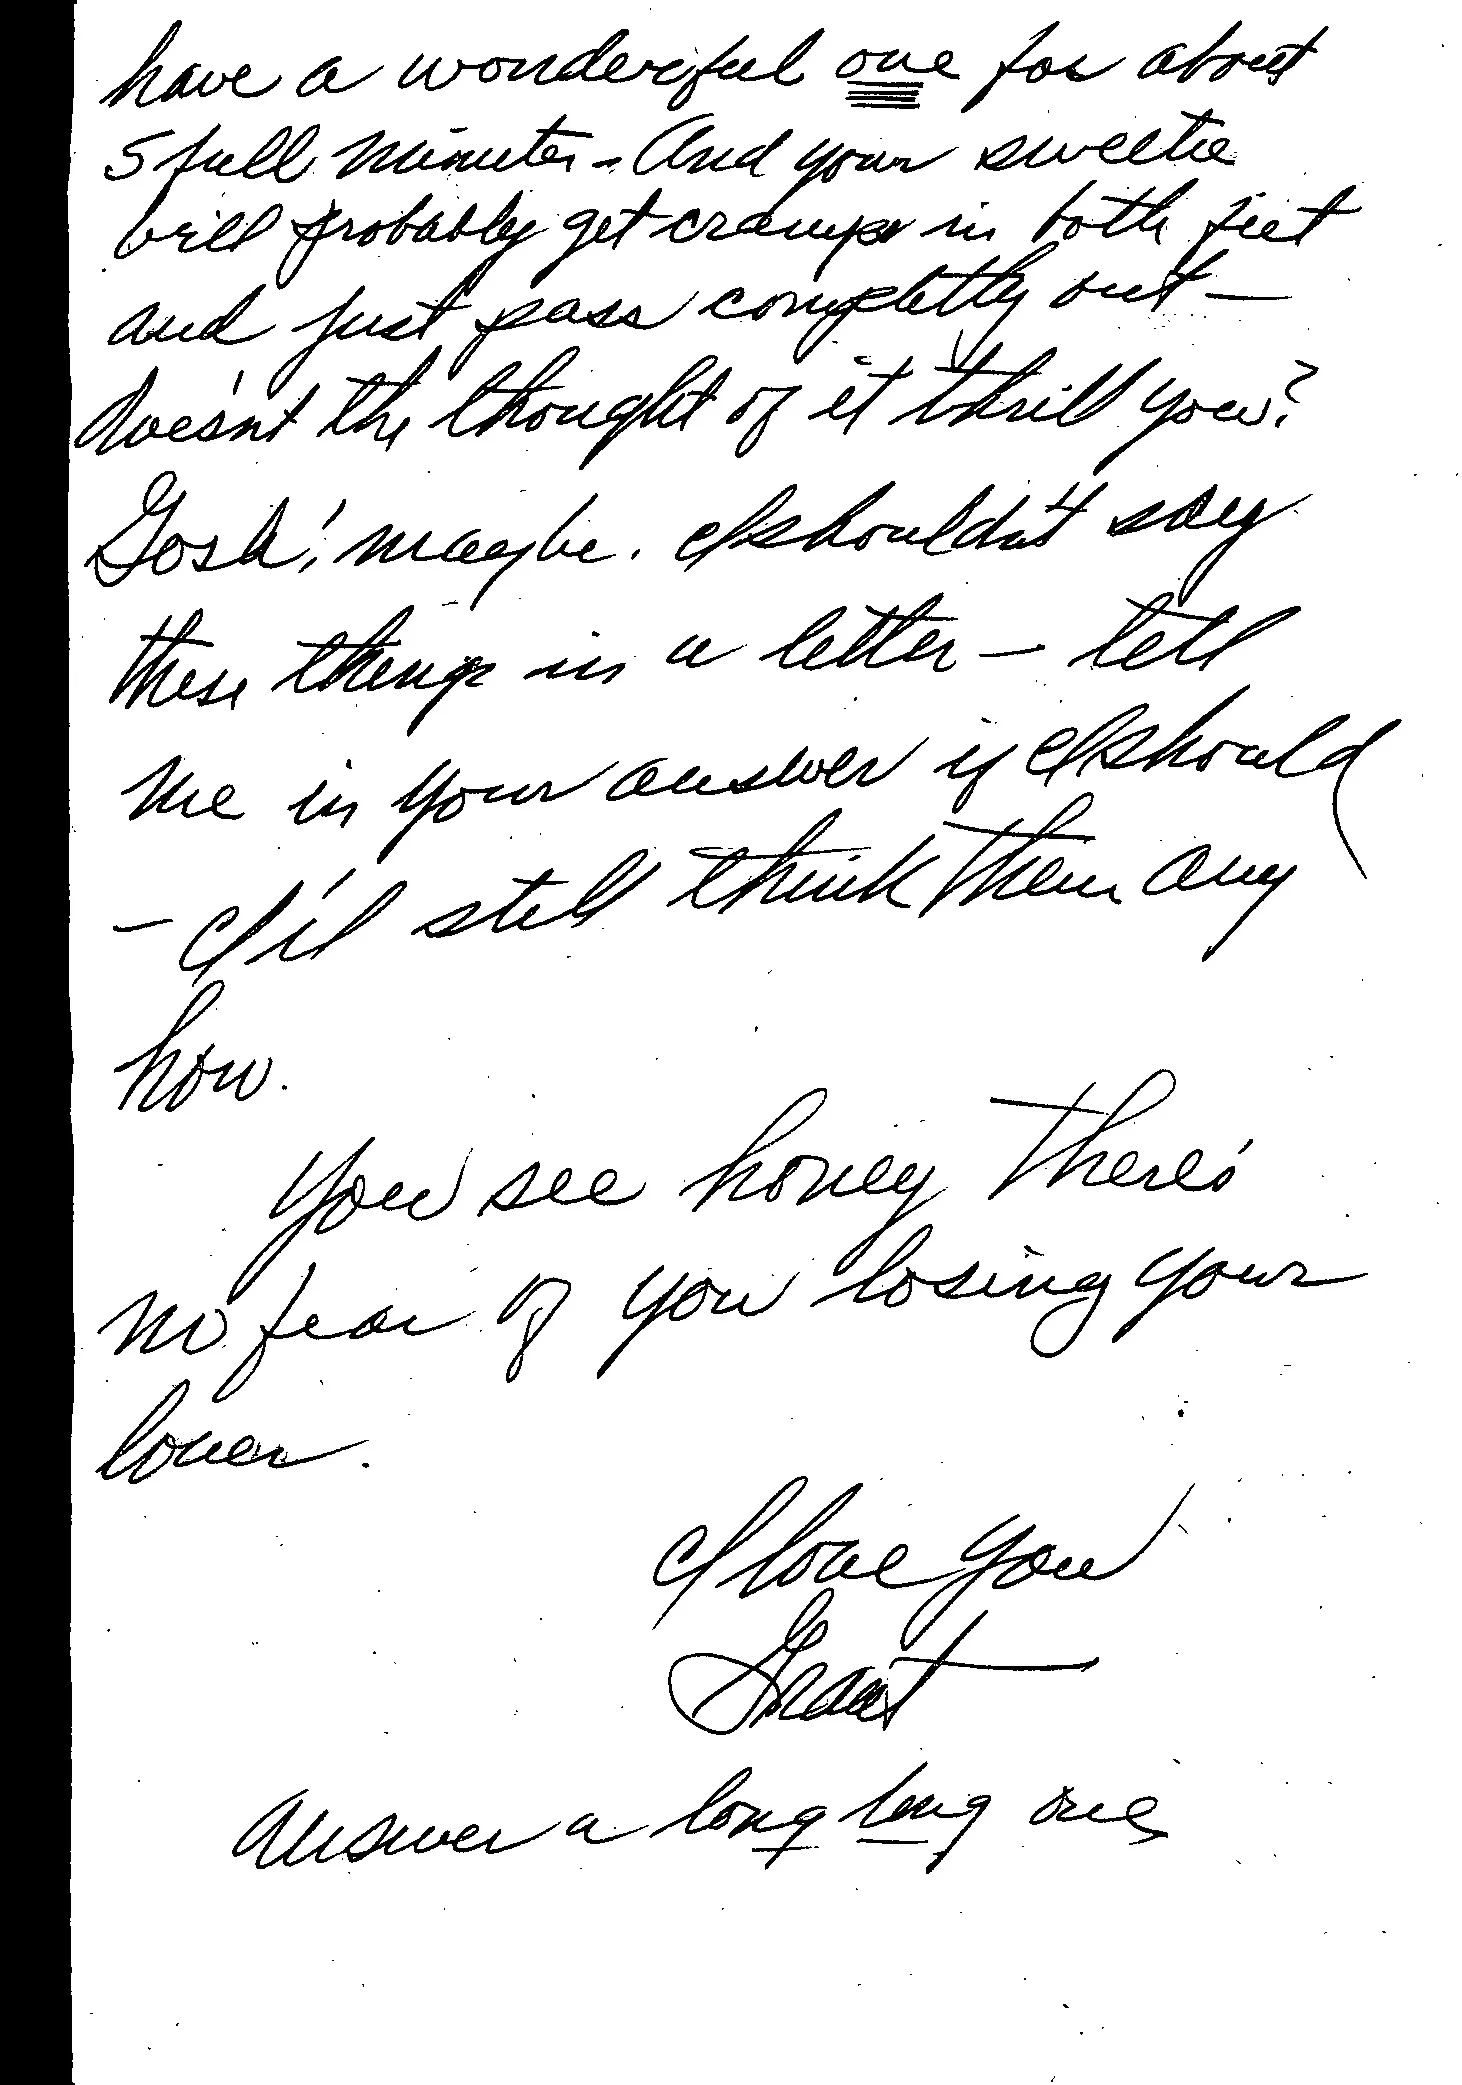 have a wonderful one for about
5 full minutes - And your sweetie
will probably get cramps in both feet
and just pass completly out —
doesn't the thought of it thrill you?
Gosh! maybe. I shouldn't say
these things in a letter — tell
me in your answer if I should
— I'll still think them any
how.
You see honey there's
no fear of you losing your
lover.
I love you
Grant
Answer a long long one